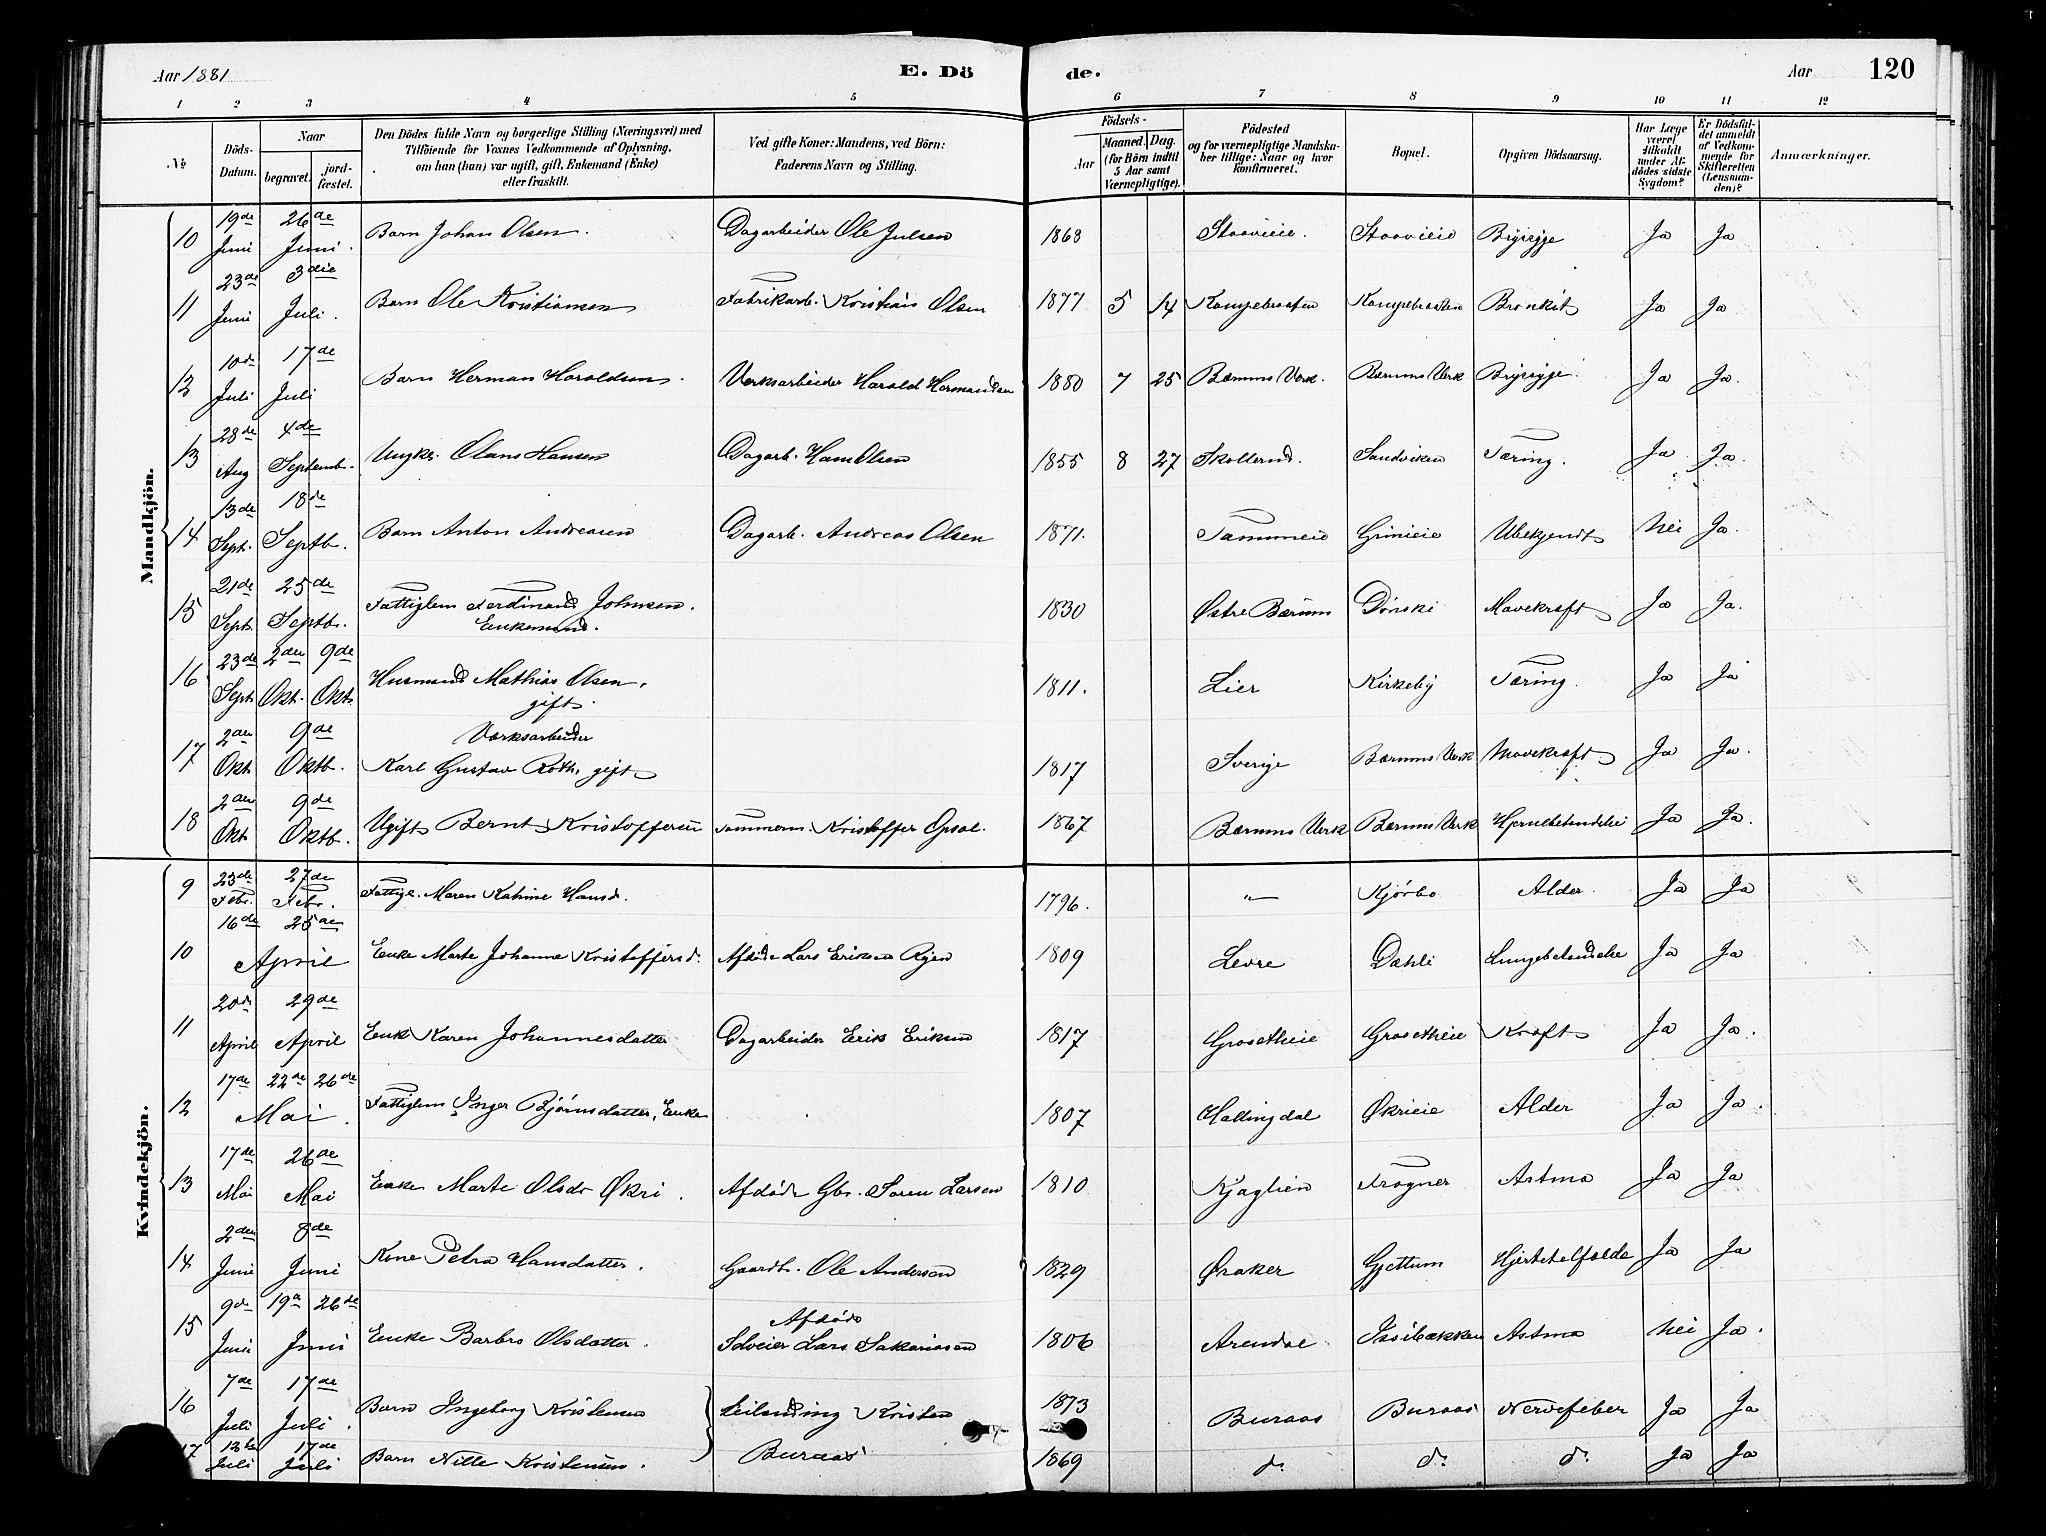 Aar 1881 E. Dö de. Aar 120
1 2 3 4 5 6 7 8 9 10 11 12
№ Döds-Datum. Naar begravet. jord-fæstet. Den Dödes fulde Navn og borgerlige Stilling (Næringsvei) med Tilföiende for Voxnes Vedkommende af Oplysning, om han (hun) var ugift, gift, Enkemand (Enke) eller fraskilt. Ved gifte Koner: Mandens, ved Börn: Faderens Navn og Stilling. Födsels- Aar Maaned. Dag. (for Börn indtil 5 Aar samt Værnepligtige). Födested og for værnepligtige Mandskaber tillige: Naar og hvor konfirmeret. Bopæl. Opgiven Dödsaarsag. Har Læge været tilkaldt under Afdödes sidste Sygdom? Er Dödsfaldet anmeldt af Vedkommende for Skifteretten (Lensmanden)? Anmærkninger.
Mandkjön.
10 19de Juni 26de Juni. Barn Johan Olsen. Dagarbeider Ole Julsen 1868 Staavieie. Staavieie Ja Ja
11 23de Juni 3die Juli. Barn Ole Kristiansen Fabrikarb. Kristian Olsen 1877 5 14 Kampebraaten Kampebraaten Bronkit Ja Ja.
12 10de Juli 17de Juli Barn Herman Haraldsen. Verksarbeider Harald Hermandsen 1880 7 25 Bærums Verk. Bærums Verk Ja Ja.
13 28de Aug 4de Septemb. Ungkr. Olaus Hansen Dagarb. Hans Olsen 1855 8 27 Skollerud. Sandviken Tæring. Ja Ja.
14 13de Sept. 18de Septb. Barn Anton Andreasen Dagarb. Andreas Olsen 1871. Tammeie Grinieie Ubekjendt Nei Ja.
15 21de Sept. 25de Septb. Fattiglem Ferdinand Johnsen. Enkemand. 1830 Østre Bærum Dønski Mavekræft Ja Ja.
16 23de Sept. 2den Okt. 9de Okt. Husmand Mathias Olsen, gift. 1811. Lier Kirkeby Tæring. Ja Ja
17 2den Okt. 9de Oktb. Værksarbeider Karl Gustav Roth, gift 1817 Sverige Bærums Verk Mavekræft Ja Ja.
18 2den Okt. 9de Oktb. Ugift Bernt Kristoffersen Tømmerm. Kristoffer Opsal. 1867 Bærums Verk Bærums Verk Ja Ja.
Kvindekjön.
9 23de Febr. 27de Febr. Fattigl. Maren Katrine Hansd. 1796. " Kjørbo Alder. Ja Ja
10 16de 25de April Enke Marte Johanne Kristoffersd. Afdøde Lars Eriksen Ryen 1809 Levre Dæhli Lungebetændelse Ja Ja
11 20de April 29de April Enke Karen Johannesdatter Dagarbeider Erik Eriksen 1817 Grosetheie Grosetheie Kræft Ja Ja.
12 17de 22de 26de Mai. Fattiglem Inger Bjørnsdatter, Enke 1807 Hallingdal Økrieie Alder Ja Ja.
13 17de Mai 26de Mai Enke Marte Olsdr Økri. Afdøde Gbr. Søren Larsen 1810 Kjaglien Frogner Astma Ja Ja
14 2den Juni 8de Juni Kone Petra Hansdatter. Gaardb. Ole Andersen 1829 Øraker Gjettum Ja Ja
15 9de Juni 19de 26de Juni Enke Barbro Olsdatter. Afdøde Lars Sakariasen 1806 Arendal Astma Nei Ja.
16 7de Juli 17de Juli. Barn Ingeborg Kristensen Leilending Kristen Buraas 1873 Buraas Buraas Nervefeber Ja Ja
17 Juli 17de Juli Barn Kristensen. 1869 d. d. d. Ja Ja